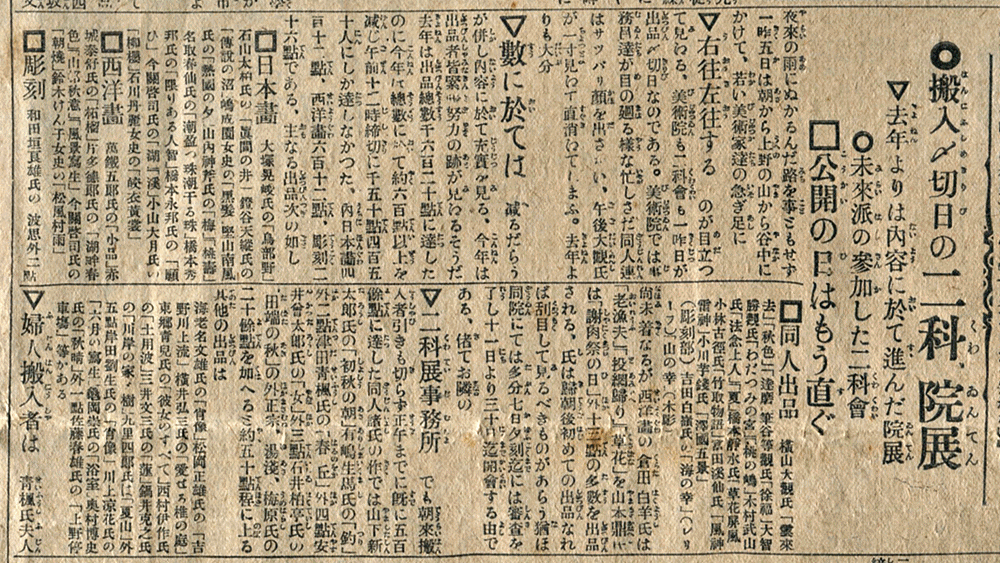 ●搬入〆切日の二科、院展
▼去年よりは内容に於て進んだ院展
○未來派の參加した二科會
□公開の日はもう直ぐ
夜來の雨にぬかるんだ路を事ともせず
一昨五日は朝から上野の山から谷中に
かけて、若い美術家達の急ぎ足に
▼右往左往する のが目立つ
て見ゆる、美術院も二科會も一昨日が
出品〆切日なのである。美術院では事
務員達が目の廻る樣な忙しさだ同人連
はサツパリ顏を出さない、午後大觀氏
が一寸見わて直消わてしまふ。去年よ
りも大分
▼數に於ては 減るだらう
が併し内容に於て充實が見る、今年は
出品者皆緊張努力の跡が見わるそうだ
去年は出品總數千六百二十點に達した
のに今年は總數に於て約六百點以上を
減じ午前十二時締切に千五十點四百五
十人にしか達しなかつた、内日本畵四
百十一點 西洋畵六百十二點、彫刻二
十六點である、主なる出品次の如し
□日本畵 大塚晃岐氏の「鳥部野」
石山太柏氏の「眞間の井」鐙谷天縱氏の
「傳説の沼」嶋成園女史の「黑髮」堅山南風
氏の「熱國の夕」山内神斧氏の「梅」「桃壽」
名取春仙氏の「潮盈つ珠潮干る珠」橋本秀
邦氏の「限りある人智」橋本永邦氏の「願
ひ」今關啓司氏の「湖」「溪」小山大月氏の
「柳櫻」石川丹麗女史の「絞衣黄裳」
□西洋畵 萬鐵五郎氏の「小品」赤
城泰舒氏の「柘榴」片多德郎氏の「湖畔春
色」「風景寫生」今關啓司氏の
「朝燒」鈴木けん子女史の「松風村雨」
□彫刻 和田垣良雄氏の 波思外二點
■同人出品 橫山大觀氏「雲來
去」「秋色」「達磨」筆谷等觀氏「徐福」「天智
勝觀氏「わだつみの宮」「桃の嶋」木村武山
氏「法念上人」「夏」橋本靜水氏「草花屏風
小林古徑氏「竹取物語」富田溪仙氏「風神
雷神」小川芋錢氏「澤國五景」
(彫刻部)吉田白嶺氏の「海の幸」(レリ
ーフ)「山の幸」(木彫)
尚未着なるが西洋畵の倉田白羊氏は
「老漁夫」「投網歸り」「草花」を山本鼎氏
は「謝肉祭の日」外十三點の多數を出品
される、氏は歸朝後初めての出品なれ
ば刮目して見るべきものがあらう猶ほ
同院にては多分七日夕刻迄には審査を
了し十一日より三十日迄開會する由で
ある、偖てお隣の
▼二科展事務所 でも朝來搬
入者引きも切らず正午までに旣に五百
餘點に達した同人諸氏の作では山下新
太郎氏の「初秋の朝」有嶋生馬氏の「釣」
外二點津田靑楓氏の「春ヶ丘」外四點安
井曾太郎氏の「女」外三點石井柏亭氏の
「田端の秋」の外正宗、湯淺、梅原氏の
二十餘點を加へると約五十點程に上る
其他の出品は
海老名文雄氏の「肖像」松岡正雄氏の「吉
野川上流」橫井弘三氏の「愛せる樵の庭」
東鄉靑兒氏の「彼女のすべて」西村伊作氏
の「土用波」三井文三氏の「蓮」鍋井克之氏
の「川岸の家」「樹」九里四郎氏は「夏山」外
五點岸田劉生氏の「肖像」川上凉花氏の
「六月の寫生」龜岡崇氏の「浴室」奥村博史
氏の「秋晴」外一點佐藤春雄氏の「上野停
車塲」等がある
▼婦人搬入者は 靑楓氏夫人